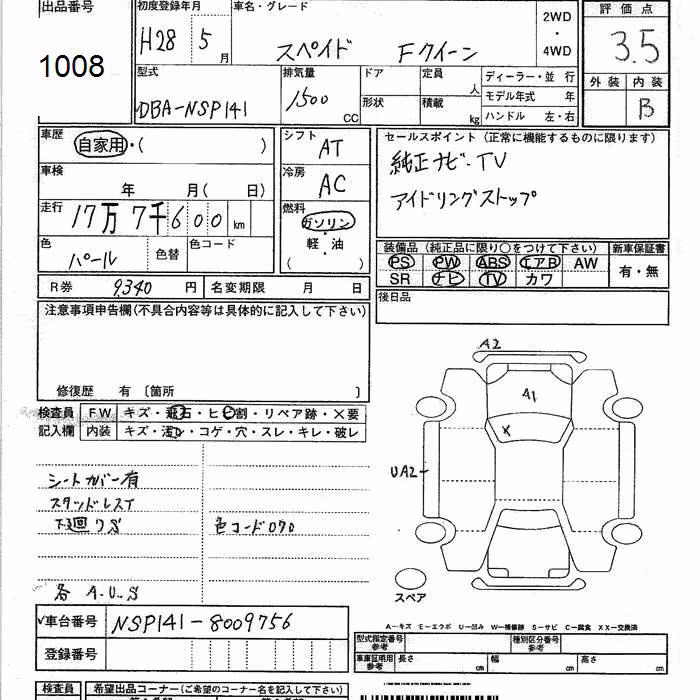 出品番号 初度登録年月 車名・グレード 評価点
1008 H28 5月 スペイド Fクイーン 2WD・4WD 3.5
型式 排気量 ドア 定員 人 ディーラー・並 行 外装 内装
モデル年式 年
DBA-NSP141 1500 CC 形状 積載 kg ハンドル 左・右 B
車歴 自家用・( ) シフト AT セールスポイント (正常に機能するものに限ります)
純正ナビ・TV
車検 年 月( 日) 冷房 AC アイドリングストップ
走行 17万7千600km 燃料 ガソリン・軽・油 ( )
色 パール 色替 色コード
装備品 (純正品に限り○をつけて下さい) 新車保証書
PS PW ABS エアB AW 有・無
SR ナビ TV カワ
R券 9340 円 名変期限 月 日 後日品
注意事項申告欄(不具合内容等は具体的に記入して下さい)
修復歴 有 〔箇所 〕
検査員 FW キズ・飛石・ヒビ割・リペア跡・×要
記入欄 内装 キズ・汚レ・コゲ・穴・スレ・キレ・破レ
A2
A1
X
UA2
シートカバー有
スタッドレスT
下廻りS 色コード070
各 A.U.S
スペア
A-キズ E-エクボ U-凹み W-補修跡 S-サビ C-腐食 XX-交換済
車台番号 NSP141-8009756
登録番号
型式指定番号 参考 種別区分番号 参考
車庫証明用 参考 長さ cm 幅 cm 高さ cm
検査員 希望出品コーナー(ご希望のコーナー名を記入して下さい)